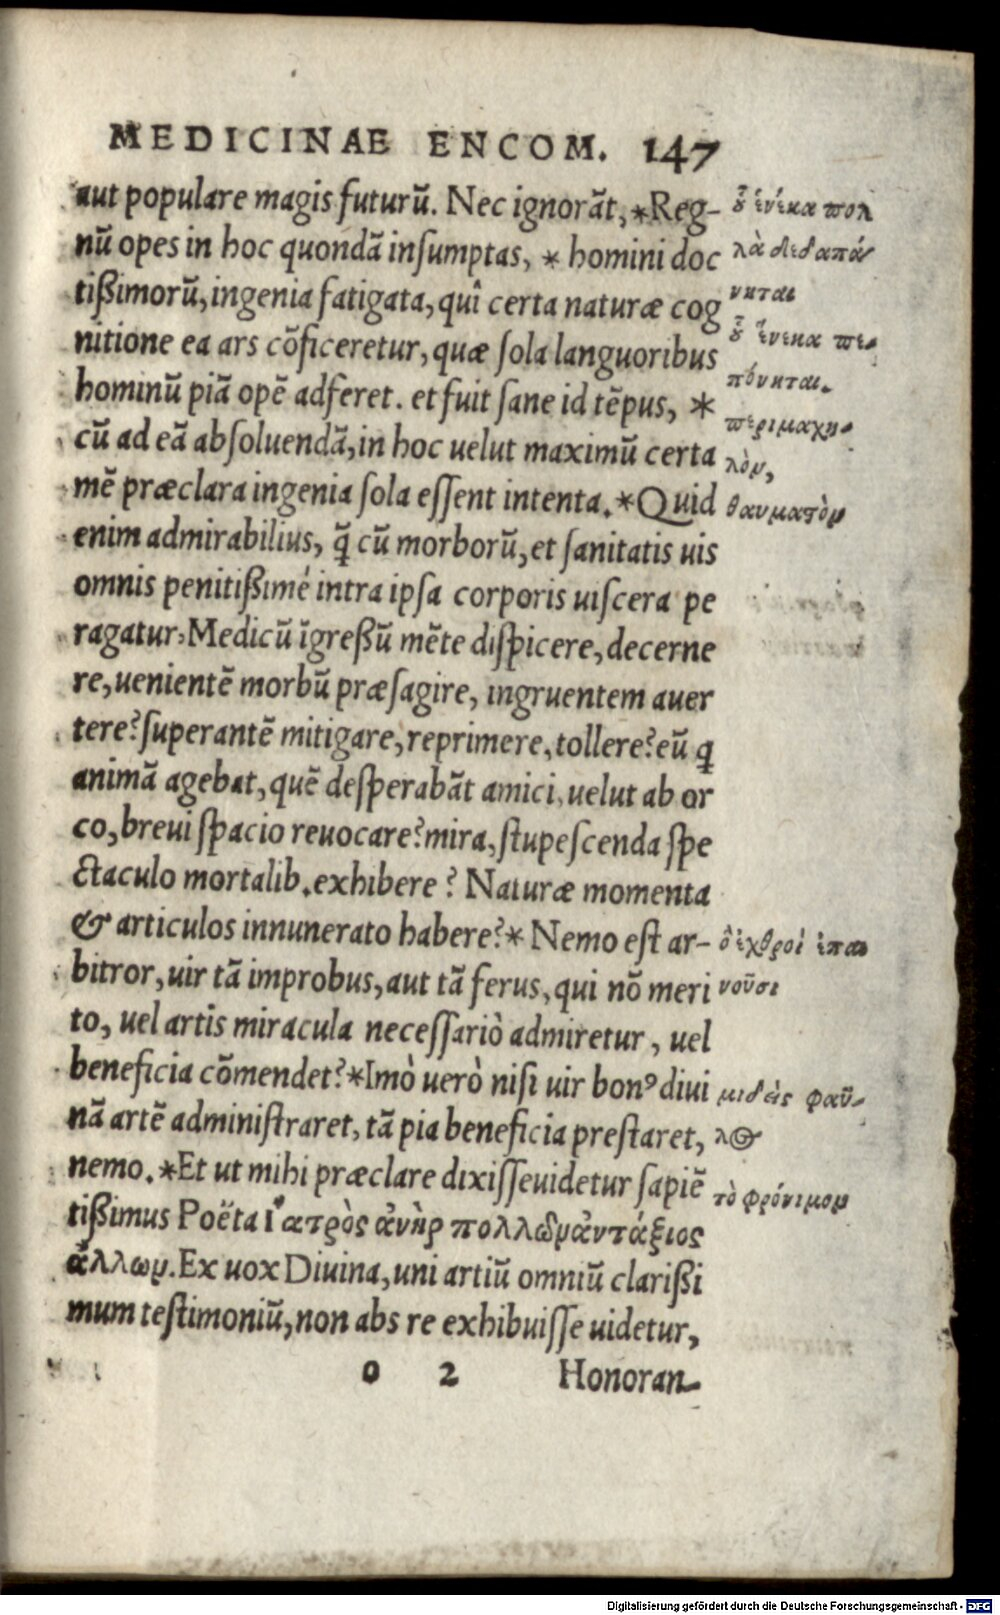 MEDICINAE ENCOM. 147
aut populare magis futurū. Nec ignorāt, *Reg-
nū opes in hoc quondā insumptas, * homini doc
tißimorū, ingenia fatigata, quî certa naturæ cog
nitione ea ars cōficeretur, quæ sola languoribus
hominū piā opē adferet. et fuit sane id tēpus, *
cū ad eā absoluendā, in hoc uelut maximū certa
mē præclara ingenia sola essent intenta. *Quid
enim admirabilius, q̄ cū morborū, et sanitatis uis
omnis penitißimé intra ipsa corporis uiscera pe
ragatur: Medicū īgreßū mēte dispicere, decerne
re, uenientē morbū præsagire, ingruentem auer
tere? superantē mitigare, reprimere, tollere? eū q
animā agebat, quē desperabāt amici, uelut ab or
co, breui spacio reuocare? mira, stupescenda spe
ctaculo mortalib. exhibere? Naturæ momenta
& articulos innunerato habere? * Nemo est ar-
bitror, uir tā improbus, aut tā ferus, qui nō meri
to, uel artis miracula necessariò admiretur, uel
beneficia cōmendet? *Imò uerò nisi uir bonꝰ diui
nā artē administraret, tā pia beneficia prestaret,
nemo. *Et ut mihi præclare dixisse uidetur sapiē
tißimus Poëta Ἰατρὸς ἀνὴρ πολλῶν ἀντάξιος
ἄλλων. Ex uox Diuina, uni artiū omniū clarißi
mum testimoniū, non abs re exhibuisse uidetur,
o 2 Honoran-
οὗ ἕνεκα πολ
λὰ δεδαπά
νηται
οὗ ἕνεκα πε-
πόνηται.
περιμαχη-
λὸν,
θαυματὸν
ὃ ἐχθροὶ ἐπαι
νοῦσι
μιδεὶς φαῦ-
λος
τὸ φρόνιμον
Digitalisierung gefördert durch die Deutsche Forschungsgemeinschaft - DFG